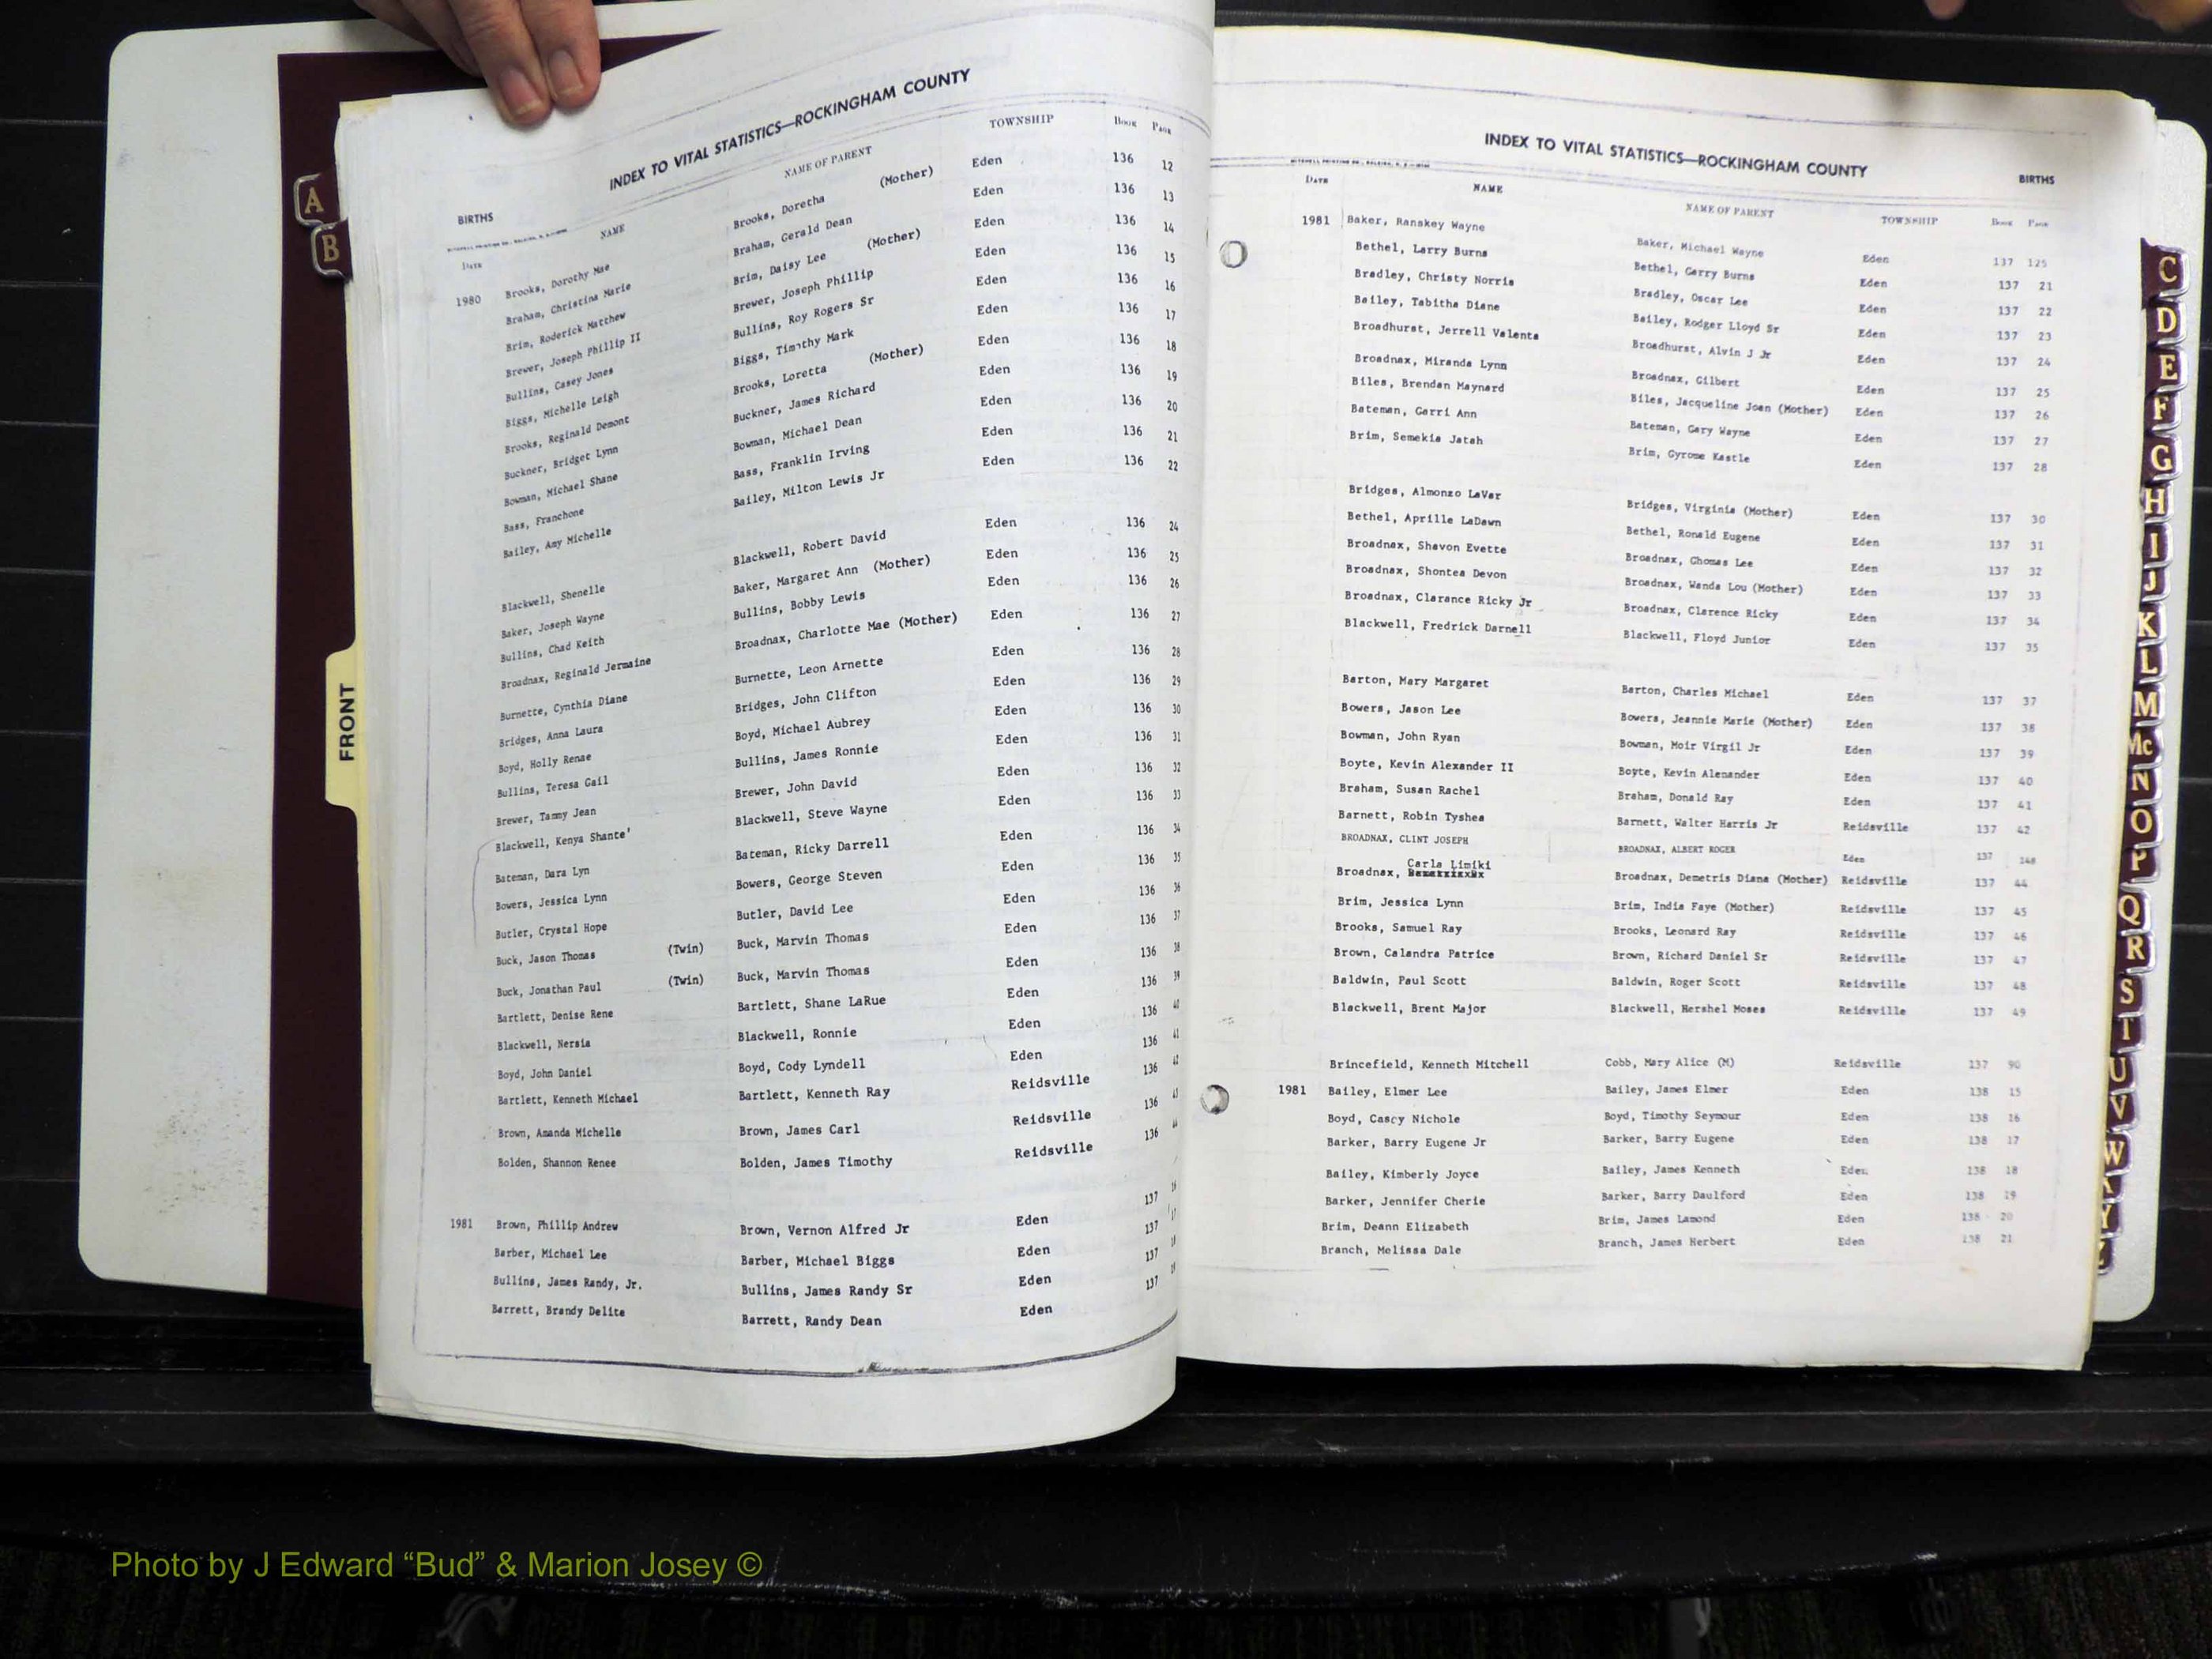 A
B
FRONT
INDEX TO VITAL STATISTICS—ROCKINGHAM COUNTY
BIRTHS
DATE NAME NAME OF PARENT TOWNSHIP BOOK PAGE
1980 Brooks, Dorothy Mae Brooks, Doretha (Mother) Eden 136 12
Braham, Christina Marie Braham, Gerald Dean Eden 136 13
Brim, Roderick Matthew Brim, Daisy Lee (Mother) Eden 136 14
Brewer, Joseph Phillip II Brewer, Joseph Phillip Eden 136 15
Bullins, Casey Jones Bullins, Roy Rogers Sr Eden 136 16
Biggs, Michelle Leigh Biggs, Timothy Mark Eden 136 17
Brooks, Reginald Demont Brooks, Loretta (Mother) Eden 136 18
Buckner, Bridget Lynn Buckner, James Richard Eden 136 19
Bowman, Michael Shane Bowman, Michael Dean Eden 136 20
Bass, Franchone Bass, Franklin Irving Eden 136 21
Bailey, Amy Michelle Bailey, Milton Lewis Jr Eden 136 22
Blackwell, Shenelle Blackwell, Robert David Eden 136 24
Baker, Joseph Wayne Baker, Margaret Ann (Mother) Eden 136 25
Bullins, Chad Keith Bullins, Bobby Lewis Eden 136 26
Broadnax, Reginald Jermaine Broadnax, Charlotte Mae (Mother) Eden 136 27
Burnette, Cynthia Diane Burnette, Leon Arnette Eden 136 28
Bridges, Anna Laura Bridges, John Clifton Eden 136 29
Boyd, Holly Renae Boyd, Michael Aubrey Eden 136 30
Bullins, Teresa Gail Bullins, James Ronnie Eden 136 31
Brewer, Tammy Jean Brewer, John David Eden 136 32
Blackwell, Kenya Shante' Blackwell, Steve Wayne Eden 136 33
Bateman, Dara Lyn Bateman, Ricky Darrell Eden 136 34
Bowers, Jessica Lynn Bowers, George Steven Eden 136 35
Butler, Crystal Hope Butler, David Lee Eden 136 36
Buck, Jason Thomas (Twin) Buck, Marvin Thomas Eden 136 37
Buck, Jonathan Paul (Twin) Buck, Marvin Thomas Eden 136 38
Bartlett, Denise Rene Bartlett, Shane LaRue Eden 136 39
Blackwell, Nersia Blackwell, Ronnie Eden 136 40
Boyd, John Daniel Boyd, Cody Lyndell Eden 136 41
Bartlett, Kenneth Michael Bartlett, Kenneth Ray Reidsville 136 42
Brown, Amanda Michelle Brown, James Carl Reidsville 136 43
Bolden, Shannon Renee Bolden, James Timothy Reidsville 136 44
1981 Brown, Phillip Andrew Brown, Vernon Alfred Jr Eden 137 16
Barber, Michael Lee Barber, Michael Biggs Eden 137 17
Bullins, James Randy, Jr. Bullins, James Randy Sr Eden 137 18
Barrett, Brandy Delite Barrett, Randy Dean Eden 137 19
INDEX TO VITAL STATISTICS—ROCKINGHAM COUNTY
BIRTHS
DATE NAME NAME OF PARENT TOWNSHIP BOOK PAGE
1981 Baker, Ranskey Wayne Baker, Michael Wayne Eden 137 125
Bethel, Larry Burns Bethel, Garry Burns Eden 137 21
Bradley, Christy Norris Bradley, Oscar Lee Eden 137 22
Bailey, Tabitha Diane Bailey, Rodger Lloyd Sr Eden 137 23
Broadhurst, Jerrell Valente Broadhurst, Alvin J Jr Eden 137 24
Broadnax, Miranda Lynn Broadnax, Gilbert Eden 137 25
Biles, Brendan Maynard Biles, Jacqueline Joan (Mother) Eden 137 26
Bateman, Garri Ann Bateman, Gary Wayne Eden 137 27
Brim, Semekia Jatah Brim, Gyrome Kastle Eden 137 28
Bridges, Almonzo LaVar Bridges, Virginia (Mother) Eden 137 30
Bethel, Aprille LaDawn Bethel, Ronald Eugene Eden 137 31
Broadnax, Shavon Evette Broadnax, Ghomas Lee Eden 137 32
Broadnax, Shontea Devon Broadnax, Wanda Lou (Mother) Eden 137 33
Broadnax, Clarance Ricky Jr Broadnax, Clarence Ricky Eden 137 34
Blackwell, Fredrick Darnell Blackwell, Floyd Junior Eden 137 35
Barton, Mary Margaret Barton, Charles Michael Eden 137 37
Bowers, Jason Lee Bowers, Jeannie Marie (Mother) Eden 137 38
Bowman, John Ryan Bowman, Moir Virgil Jr Eden 137 39
Boyte, Kevin Alexander II Boyte, Kevin Alenander Eden 137 40
Braham, Susan Rachel Braham, Donald Ray Eden 137 41
Barnett, Robin Tyshea Barnett, Walter Harris Jr Reidsville 137 42
BROADNAX, CLINT JOSEPH BROADNAX, ALBERT ROGER Eden 137 148
Carla Limiki
Broadnax, Broadnax, Demetris Diana (Mother) Reidsville 137 44
Brim, Jessica Lynn Brim, India Faye (Mother) Reidsville 137 45
Brooks, Samuel Ray Brooks, Leonard Ray Reidsville 137 46
Brown, Calandra Patrice Brown, Richard Daniel Sr Reidsville 137 47
Baldwin, Paul Scott Baldwin, Roger Scott Reidsville 137 48
Blackwell, Brent Major Blackwell, Hershel Moses Reidsville 137 49
Brincefield, Kenneth Mitchell Cobb, Mary Alice (M) Reidsville 137 90
1981 Bailey, Elmer Lee Bailey, James Elmer Eden 138 15
Boyd, Casey Nichole Boyd, Timothy Seymour Eden 138 16
Barker, Barry Eugene Jr Barker, Barry Eugene Eden 138 17
Bailey, Kimberly Joyce Bailey, James Kenneth Eden 138 18
Barker, Jennifer Cherie Barker, Barry Daulford Eden 138 19
Brim, Deann Elizabeth Brim, James Lamond Eden 138 20
Branch, Melissa Dale Branch, James Herbert Eden 138 21
C
D
E
F
G
H
I
J
K
L
M
Mc
N
O
P
Q
R
S
T
U
V
W
Y
Photo by J Edward “Bud” & Marion Josey ©